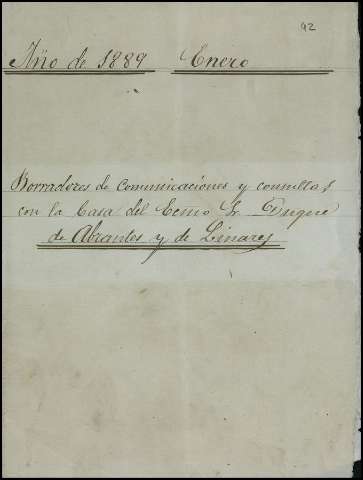 92
Año de 1889 Enero
Borradores de Comunicaciones y consultas
con la Casa del Ecmo Sr Duque
de Abrantes y de Linares